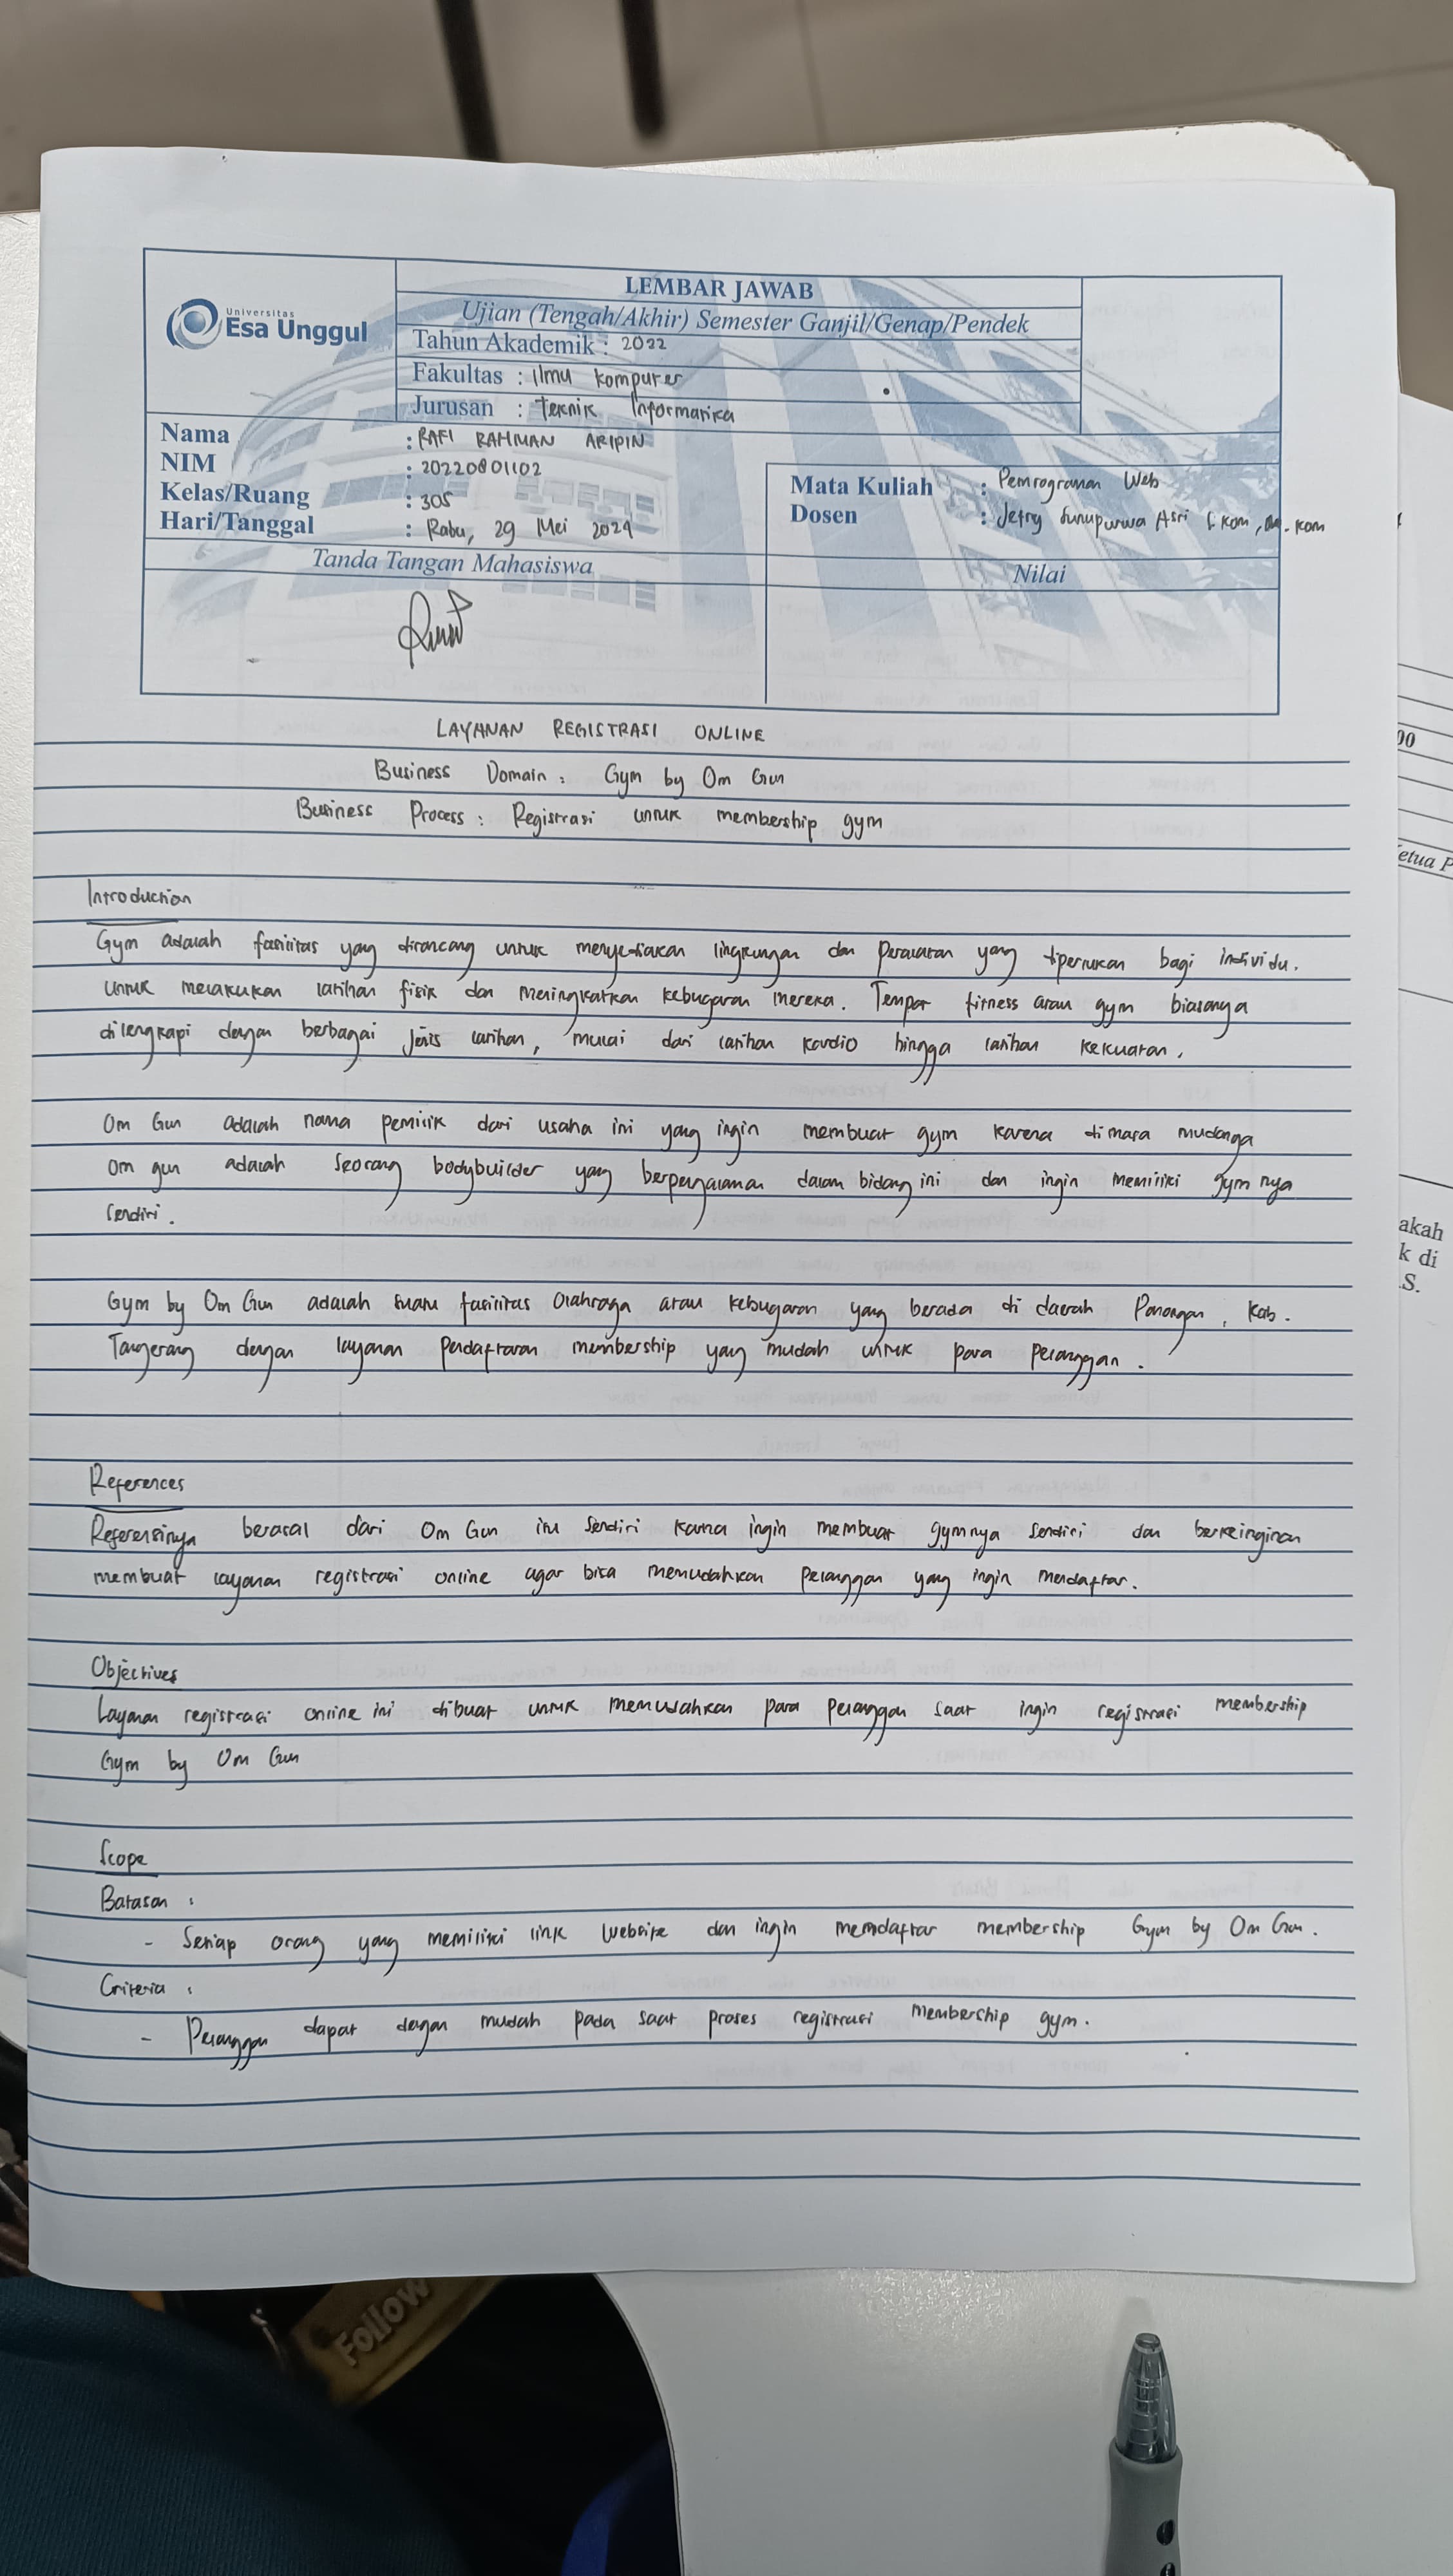 Universitas
Esa Unggul
LEMBAR JAWAB
Ujian (Tengah/Akhir) Semester Ganjil/Genap/Pendek
Tahun Akademik : 2022
Fakultas : Ilmu komputer
Jurusan : Teknik Informatika
Nama : RAFI RAHMAN ARIPIN
NIM : 20220801102
Kelas/Ruang : 305
Hari/Tanggal : Rabu, 29 Mei 2024
Mata Kuliah : Pemrograman Web
Dosen : Jefry Sunupurwa Asri S.Kom, M.Kom
Tanda Tangan Mahasiswa
Nilai
LAYANAN REGISTRASI ONLINE
Business Domain : Gym by Om Gun
Business Process : Registrasi untuk membership gym
Introduction
Gym adalah fasilitas yang dirancang untuk menyediakan lingkungan dan peralatan yang diperlukan bagi individu.
untuk melakukan latihan fisik dan meningkatkan kebugaran mereka. Tempat fitness atau gym biasanya
dilengkapi dengan berbagai jenis latihan, mulai dari latihan kardio hingga latihan kekuatan.
Om Gun adalah nama pemilik dari usaha ini yang ingin membuat gym karena di masa mudanya
Om gun adalah seorang bodybuilder yang berpengalaman dalam bidang ini dan ingin memiliki gym nya
sendiri.
Gym by Om Gun adalah suatu fasilitas olahraga atau kebugaran yang berada di daerah Panongan, Kab.
Tangerang dengan layanan pendaftaran membership yang mudah untuk para pelanggan.
References
Referensinya berasal dari Om Gun itu sendiri karna ingin membuat gymnya sendiri dan berkeinginan
membuat layanan registrasi online agar bisa memudahkan pelanggan yang ingin mendaftar.
Objectives
Layanan registrasi online ini dibuat untuk memudahkan para pelanggan saat ingin registrasi membership
Gym by Om Gun
Scope
Batasan :
- Setiap orang yang memiliki link website dan ingin memdaftar membership Gym by Om Gun.
Criteria :
- Pelanggan dapat dengan mudah pada saat proses registrasi membership gym.
00
etua P
akah
k di
.S.
Follow